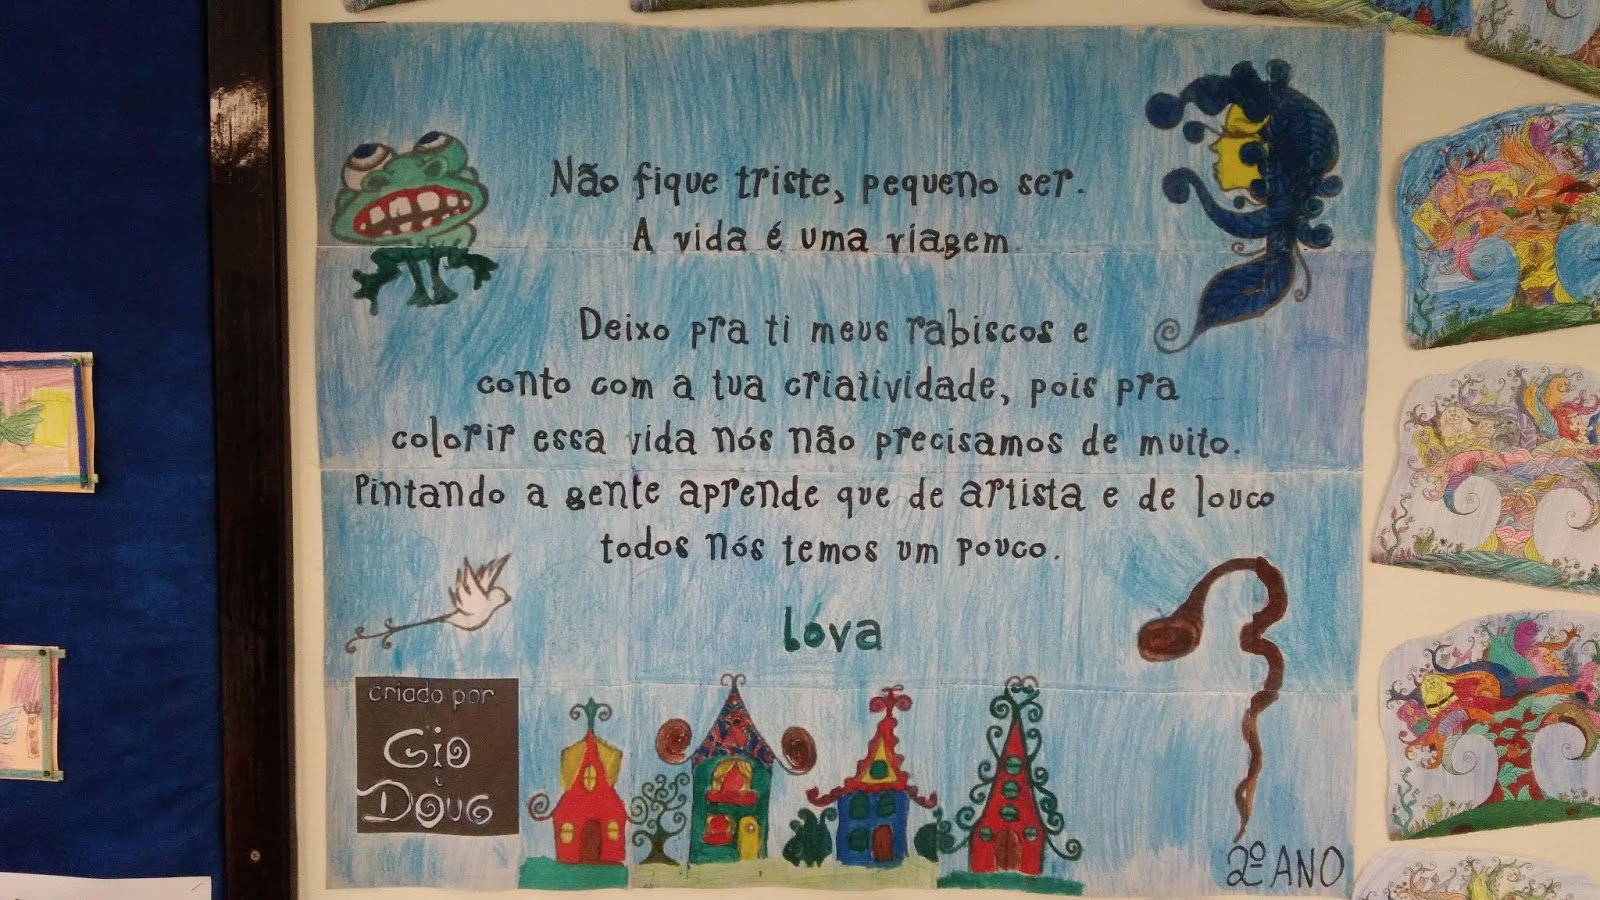 Não fique triste, pequeno ser.
A vida é uma viagem.
Deixo pra ti meus rabiscos e
conto com a tua criatividade, pois pra
colorir essa vida nós não precisamos de muito.
Pintando a gente aprende que de artista e de louco
todos nós temos um pouco.
Lóva
criado por
Gio
e
Doug
2º ANO